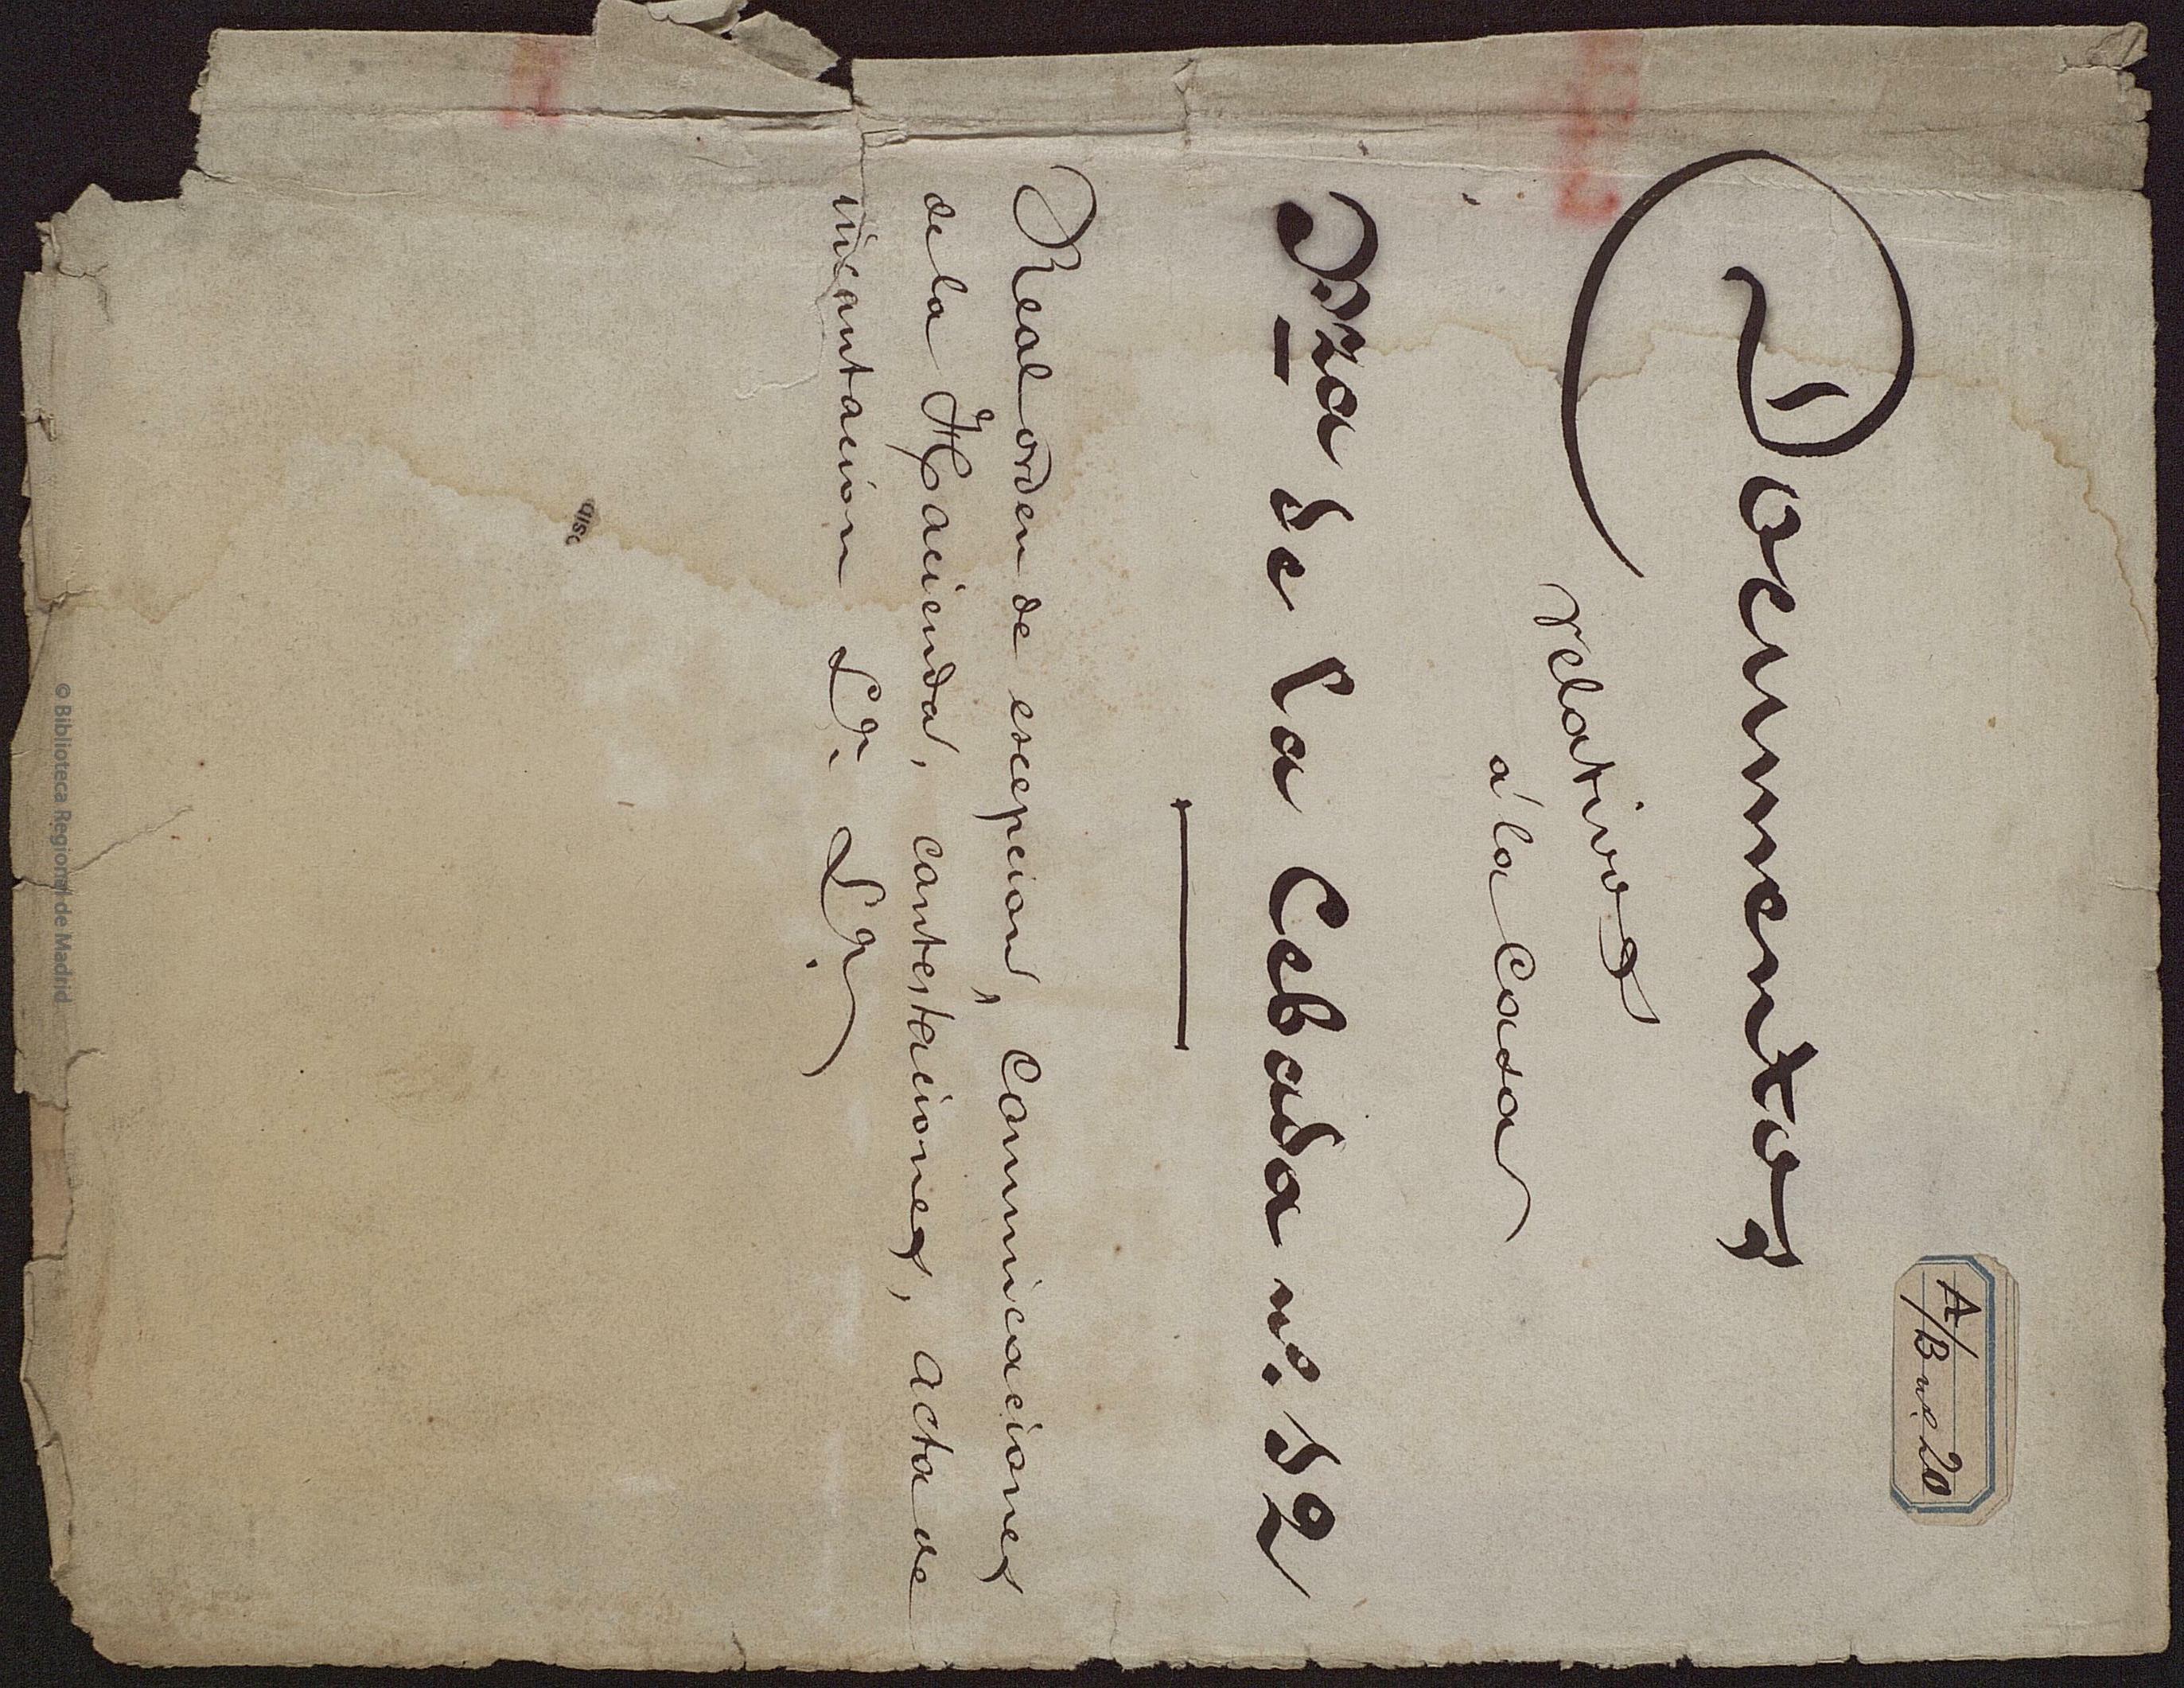 A/B nº 20
Documentos
relativos
á la Casa
Pza de la Cebada nº. 12
Real orden de escepcion, Comunicaciones
de la Hacienda, contestaciones, acta de
incautacion &ª. &ª.
© Biblioteca Regional de Madrid